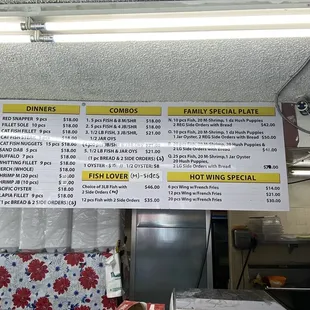 DINNERS
RED SNAPPER $18.00
FILLET SOLE $18.00
CAT FISH FILLET $18.00
CAT FISH $18.00
CAT FISH NUGGETS 15 pcs $18.00
SAND DAB 5 pcs $18.00
BUFFALO 7 pcs $18.00
WHITTING FILLET 9 pcs $18.00
PERCH (WHOLE) $18.00
SHRIMP M (20 pcs)
SHRIMP JB (10 pcs) $18.00
PACIFIC OYSTER $18.00
TILAPIA FILLET $18.00
(1 pc BREAD & 2 SIDE ORDERS)
COMBOS
1. 5 pcs FISH & 8 M/SHR $18.00
2. 5 pcs FISH & 4 JB/SHR $18.00
3. 1/2 LB FISH, 3 JB/SHR, $21.00
1/2 JAR OYS
5. 1/2 LB FISH & JAR OYS $21.00
(1 pc BREAD & 2 SIDE ORDERS)
FISH LOVER (4)-SIDES
Choice of 3LB FISH with $46.00
2 Side Orders
12 pcs FISH with 2 Side $35.00
FAMILY SPECIAL PLATE
N: 10 pcs Fish, 20 M Shrimp, 1 dz Hush Puppies
2 LG Side Orders with Bread $42.00
2 REG Side Orders with Bread $50.00
2 LG Side Orders with Bread $61.00
Q: 25 pcs Fish, 20 M Shrimp, 1 Jar Oyster
20 Hush Puppies
2 LG Side Orders with Bread
HOT WING SPECIAL
6 pcs Wing w/French Fries $14.00
12 pcs Wing w/French Fries $21.00
20 pcs Wing w/French Fries $30.00